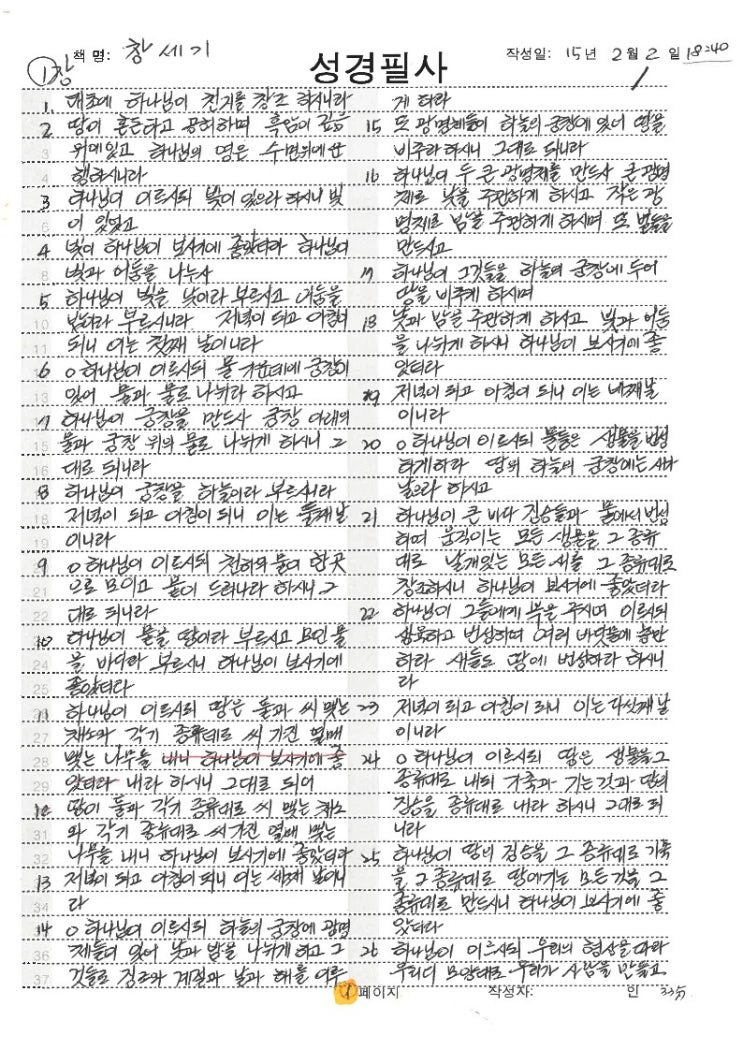 책 명: 창세기
①장
성경필사
작성일: 15년 2월 2일 18:40
1 태초에 하나님이 천지를 창조 하시니라
2 땅이 혼돈하고 공허하며 흑암이 깊음
위에 있고 하나님의 영은 수면위에 운
행하시니라
3 하나님이 이르시되 빛이 있으라 하시니 빛
이 있었고
4 빛이 하나님이 보시기에 좋았더라 하나님이
빛과 어둠을 나누사
5 하나님이 빛을 낮이라 부르시고 어둠을
밤이라 부르시니라 저녁이 되고 아침이
되니 이는 첫째 날이니라
6 ○하나님이 이르시되 물 가운데에 궁창이
있어 물과 물로 나뉘라 하시고
7 하나님이 궁창을 만드사 궁창 아래의
물과 궁창 위의 물로 나뉘게 하시니 그
대로 되니라
8 하나님이 궁창을 하늘이라 부르시니라
저녁이 되고 아침이 되니 이는 둘째 날
이니라
9 ○하나님이 이르시되 천하의 물이 한곳
으로 모이고 뭍이 드러나라 하시니 그
대로 되니라
10 하나님이 뭍을 땅이라 부르시고 모인 물
을 바다라 부르시니 하나님이 보시기에
좋았더라
11 하나님이 이르시되 땅은 풀과 씨 맺는
채소와 각기 종류대로 씨 가진 열매
맺는 나무를 내니 하나님이 보시기에 좋
았더라 내라 하시니 그대로 되어
12 땅이 풀과 각기 종류대로 씨 맺는 채소
와 각기 종류대로 씨가진 열매 맺는
나무를 내니 하나님이 보시기에 좋았더라
13 저녁이 되고 아침이 되니 이는 셋째 날이니
라
14 ○하나님이 이르시되 하늘의 궁창에 광명
체들이 있어 낮과 밤을 나뉘게 하고 그
것들로 징조와 계절과 날과 해를 이루
게 하라
15 또 광명체들이 하늘의 궁창에 있어 땅을
비추라 하시니 그대로 되니라
16 하나님이 두 큰 광명체를 만드사 큰 광명
체로 낮을 주관하게 하시고 작은 광
명체로 밤을 주관하게 하시며 또 별들을
만드시고
17 하나님이 그것들을 하늘의 궁창에 두어
땅을 비추게 하시며
18 낮과 밤을 주관하게 하시고 빛과 어둠
을 나뉘게 하시니 하나님이 보시기에 좋
았더라
19 저녁이 되고 아침이 되니 이는 네째날
이니라
20 ○하나님이 이르시되 물들은 생물을 번성
하게하라 땅위 하늘의 궁창에는 새가
날으라 하시고
21 하나님이 큰 바다 짐승들과 물에서 번성
하여 움직이는 모든 생물을 그 종류
대로 날개있는 모든 새를 그 종류대로
창조하시니 하나님이 보시기에 좋았더라
22 하나님이 그들에게 복을 주시며 이르시되
생육하고 번성하여 여러 바닷물에 충만
하라 새들도 땅에 번성하라 하시니
라
23 저녁이 되고 아침이 되니 이는 다섯째 날
이니라
24 ○하나님이 이르시되 땅은 생물을 그
종류대로 내되 가축과 기는것과 땅의
짐승을 종류대로 내라 하시니 그대로 되
니라
25 하나님이 땅의 짐승을 그 종류대로 가축
을 그 종류대로 땅에기는 모든 것을 그
종류대로 만드시니 하나님이 보시기에 좋
았더라
26 하나님이 이르시되 우리의 형상을 따라
우리의 모양대로 우리가 사람을 만들고
1 페이지
작성자: 인 33分